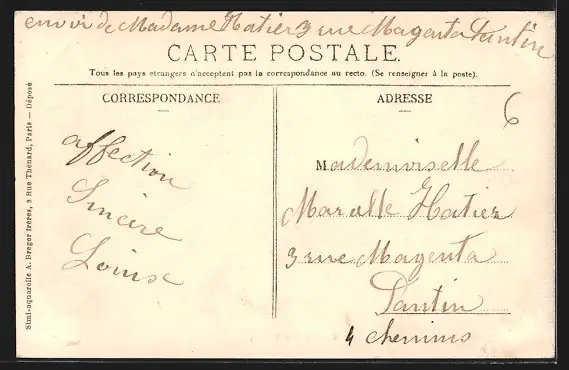 envoi de Madame Hatier 3 rue Magenta Pantin
CARTE POSTALE.
Tous les pays etrangers n'acceptent pas la correspondance au recto. (Se renseigner à la poste).
CORRESPONDANCE
ADRESSE
6
affection
Sincère
Louise
Mademoiselle
Marcelle Hatier
3 rue Magenta
Pantin
4 chemins
Simi-aquarelle A. Breger frères, 9 Rue Thénard, Paris — Déposé